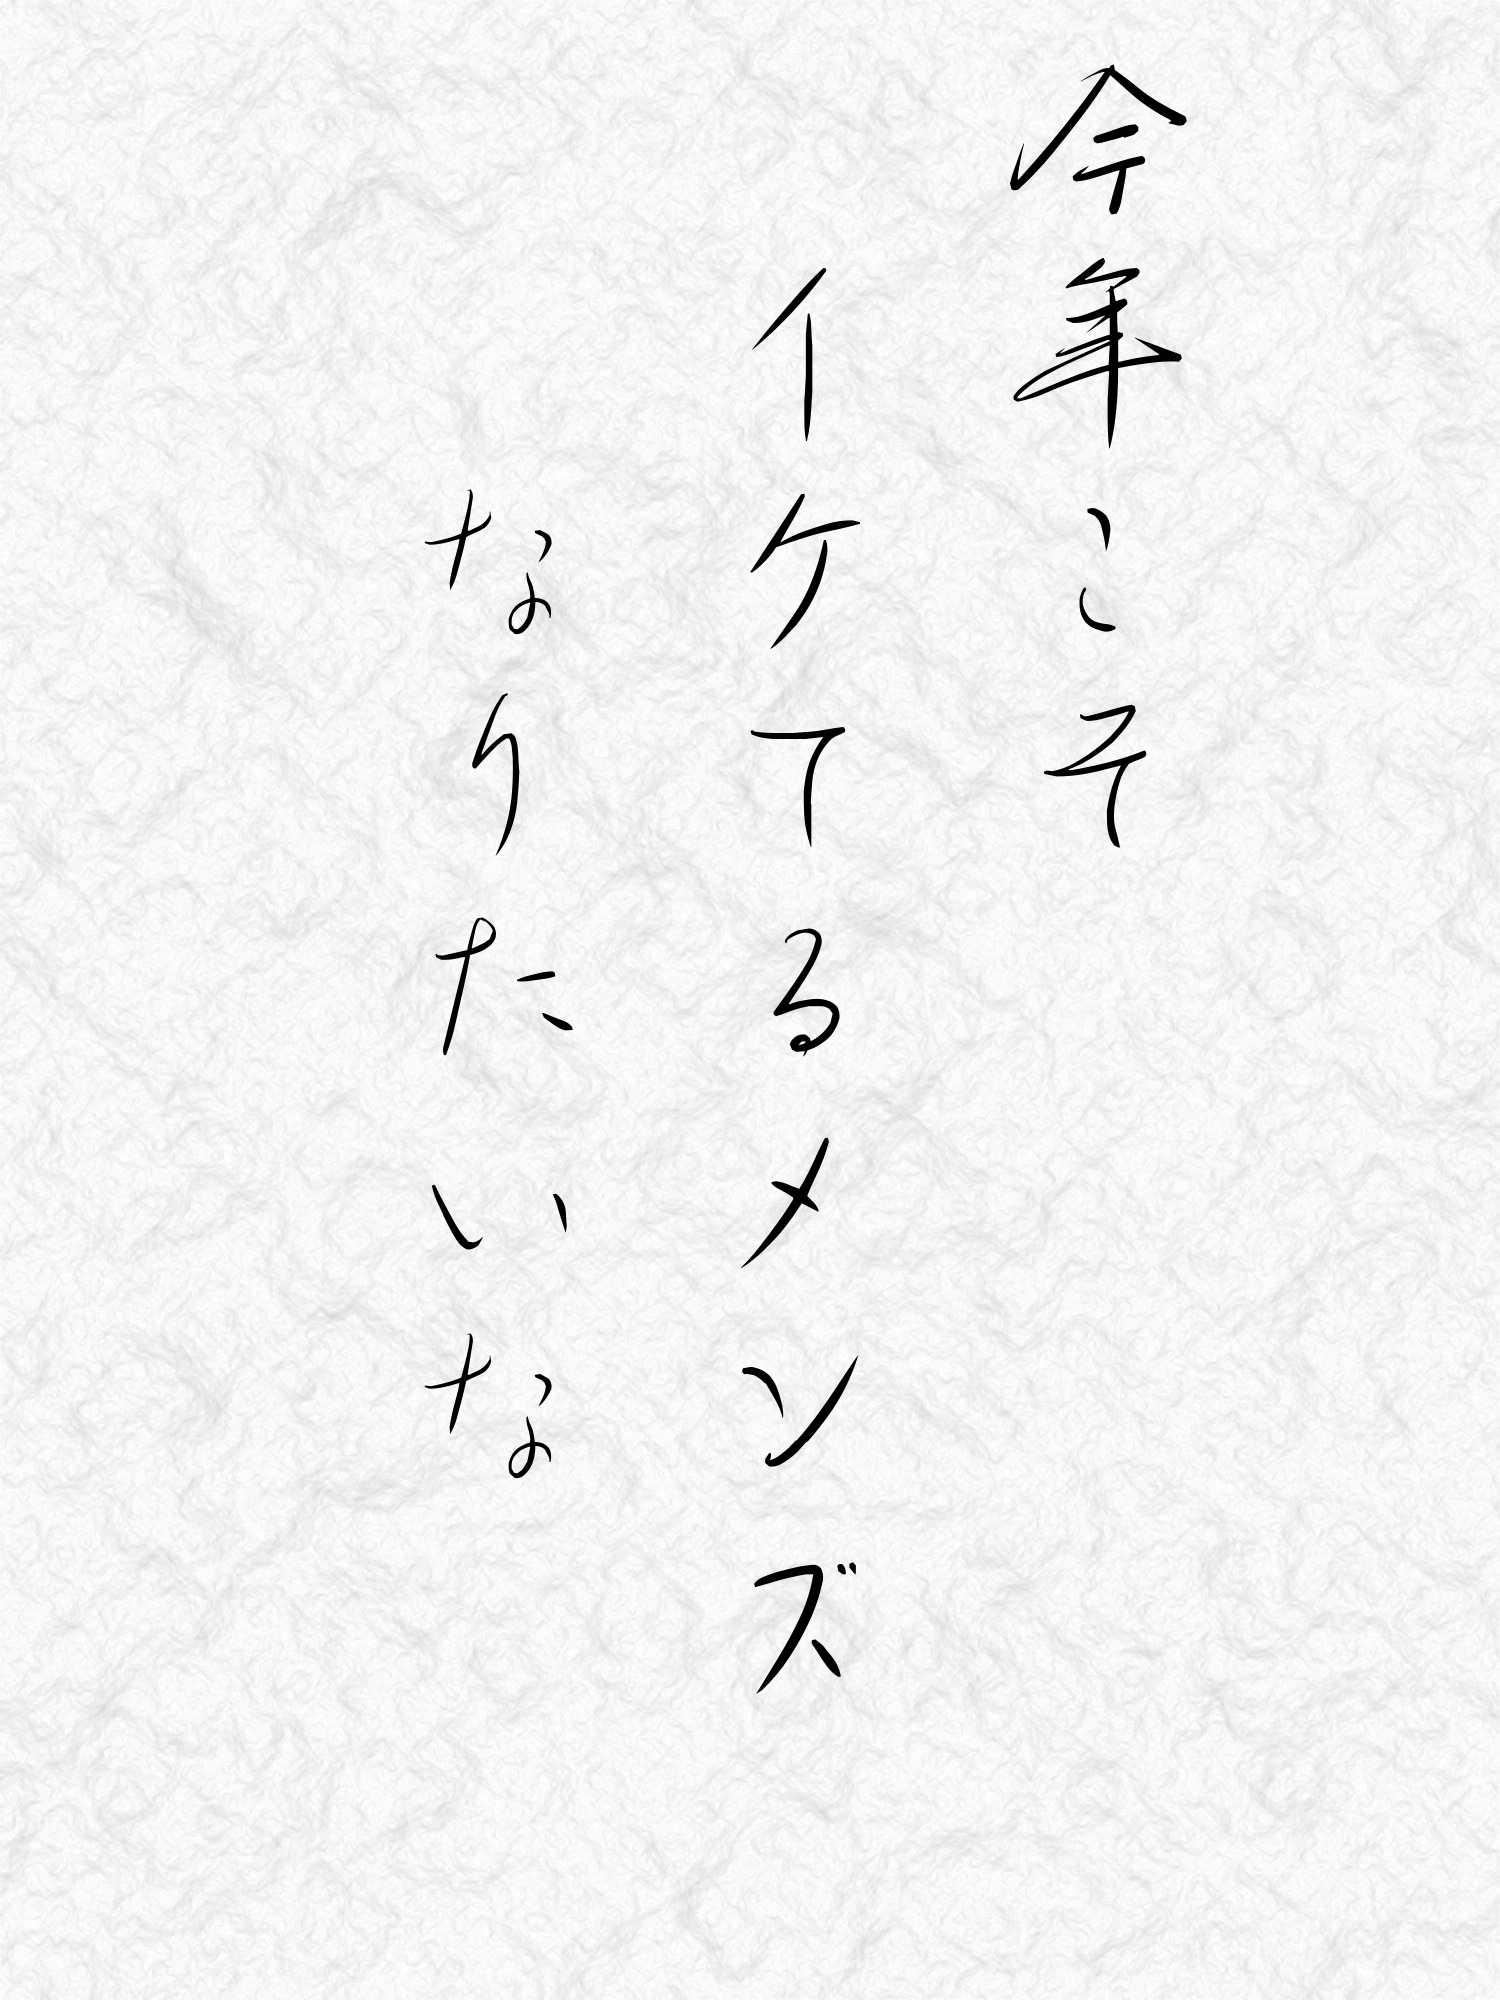 今年こそ
イケてるメンズ
なりたいな